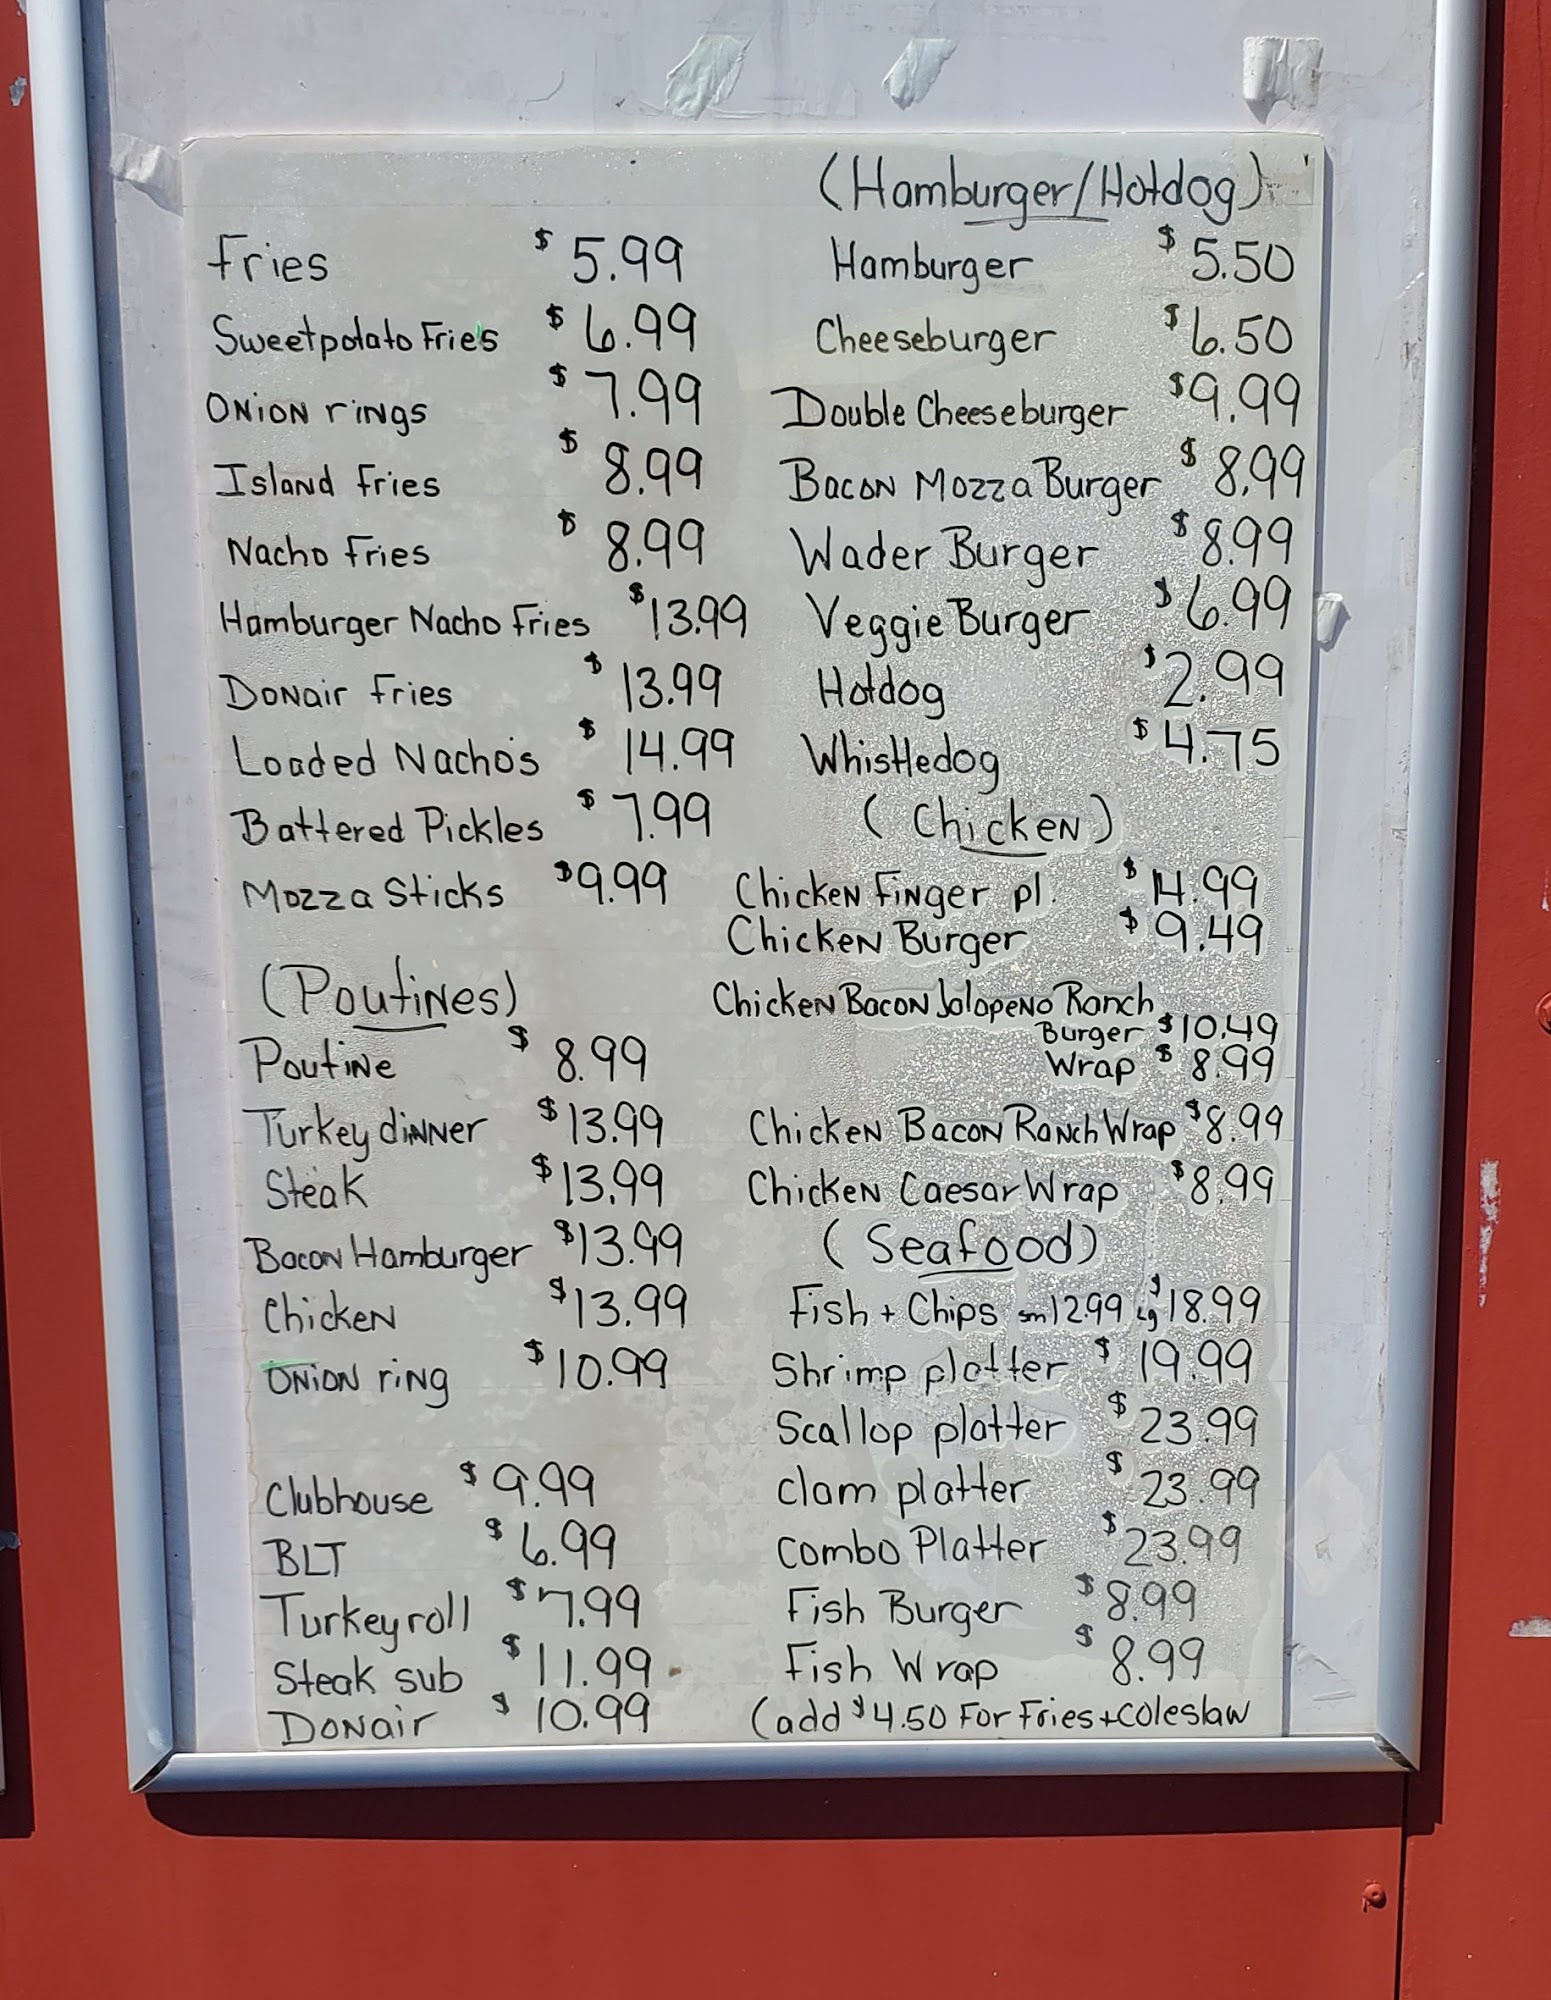 Fries $ 5.99
Sweetpotato Frie's $ 6.99
Onion rings $ 7.99
Island Fries $ 8.99
Nacho Fries $ 8.99
Hamburger Nacho Fries $13.99
Donair Fries $ 13.99
Loaded Nacho's $ 14.99
Battered Pickles $ 7.99
Mozza Sticks $9.99
(Poutines)
Poutine $ 8.99
Turkey dinner $13.99
Steak $13.99
Bacon Hamburger $13.99
Chicken $13.99
Onion ring $10.99
Clubhouse $ 9.99
BLT $ 6.99
Turkey roll $ 7.99
Steak sub $ 11.99
Donair $ 10.99
(Hamburger/Hotdog)
Hamburger $ 5.50
Cheeseburger $ 6.50
Double Cheeseburger $9.99
Bacon Mozza Burger $ 8.99
Wader Burger $ 8.99
Veggie Burger $ 6.99
Hotdog $ 2.99
Whistledog $ 4.75
(Chicken)
Chicken Finger pl. $ 14.99
Chicken Burger $ 9.49
Chicken Bacon Jalapeno Ranch
Burger $10.49
Wrap $ 8.99
Chicken Bacon Ranch Wrap $8.99
Chicken Caesar Wrap $8.99
(Seafood)
Fish + Chips sm 12.99 Lg $18.99
Shrimp platter $ 19.99
Scallop platter $ 23.99
clam platter $ 23.99
combo Platter $23.99
Fish Burger $8.99
Fish Wrap $ 8.99
(add $4.50 For Fries + coleslaw